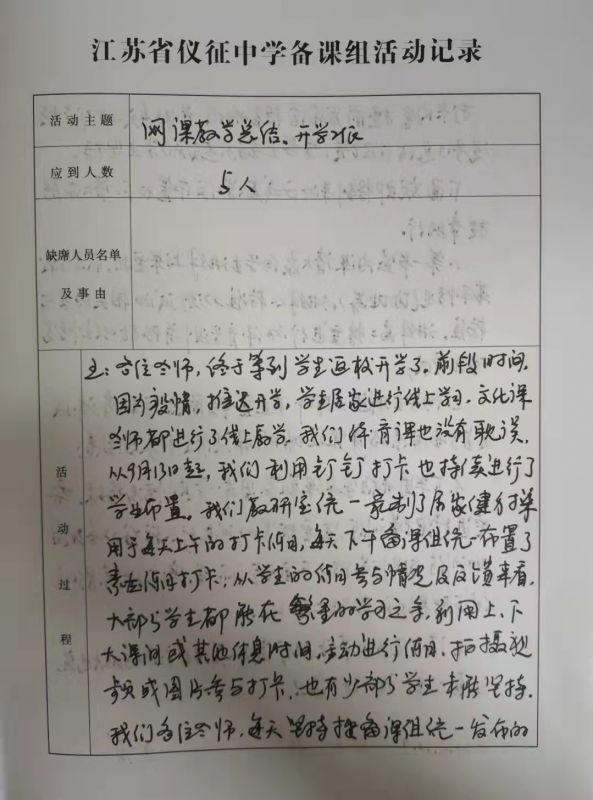 江苏省仪征中学备课组活动记录
活动主题
网课教学总结、开学
应到人数
5人
缺席人员名单
及事由
活动过程
主：各位老师，终于等到学生返校开学了。前段时间，
因为疫情，推迟开学，学生居家进行线上学习，文化课
老师都进行了线上教学，我们体育课也没有耽误。
从9月13日起，我们利用钉钉打卡也持续进行了
学生布置。我们教研室统一录制了居家健身操
用于每天上午的打卡作用，每天下午备课组统一布置了
素质作用打卡，从学生的作用参与情况及反馈来看，
大部分学生都能在繁重的学习之余，利用上、下
大课间或其他休息时间，主动进行作用，拍摄视
频或图片参与打卡，也有少部分学生未能坚持。
我们各位老师，每天坚持按备课组统一发布的